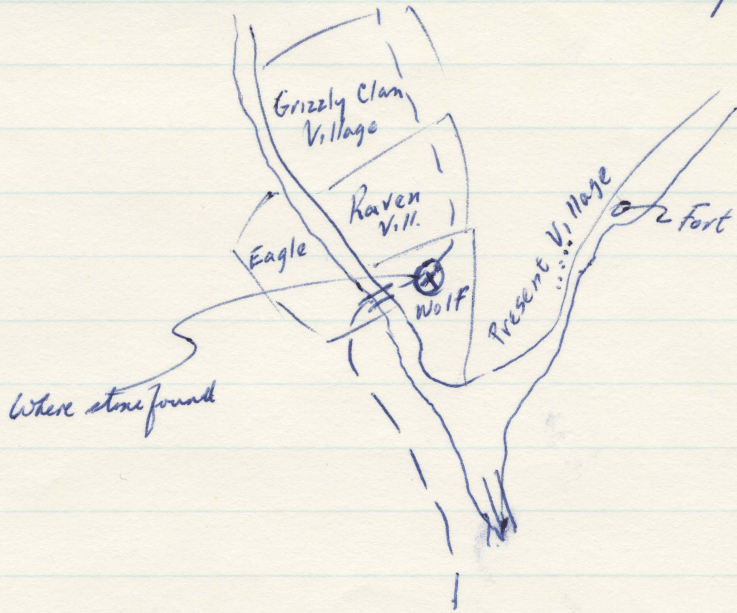 Grizzly Clan
Village
Raven
Vill.
Eagle
Wolf
Present Village
Fort
Where stone found